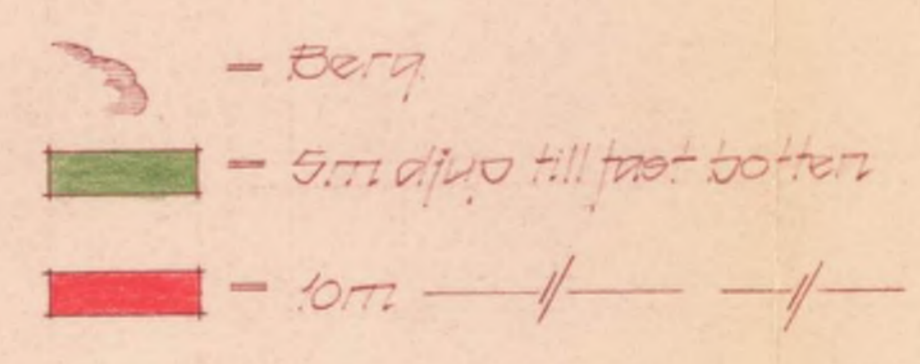 = Berg
= 5m djup till fast botten
= 10m —//— —//—